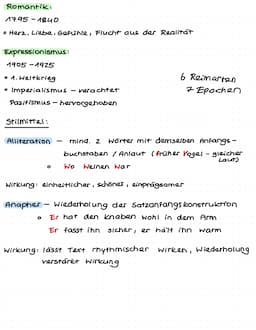 Romantik:
1795 - 1840
• Herz, Liebe, Gefühle, Flucht aus der Realität
Expressionismus:
1905 - 1925
• 1. Weltkrieg
• Imperialismus - verachtet
Pazifismus - hervorgehoben
6 Reimarten
7 Epochen
Stilmittel:
Alliteration - mind. 2 Wörter mit demselben Anfangs-
buchstaben / Anlaut (früher Vogel - gleicher Laut)
• Wo Weinen War
Wirkung: einheitlicher, schöner, einprägsamer
Anapher - Wiederholung der Satzanfangskonstruktion
• Er hat den Knaben wohl in dem Arm
Er fasst ihn sicher, er hält ihn warm
Wirkung: lässt Text rhythmischer wirken, Wiederholung
verstärkt Wirkung